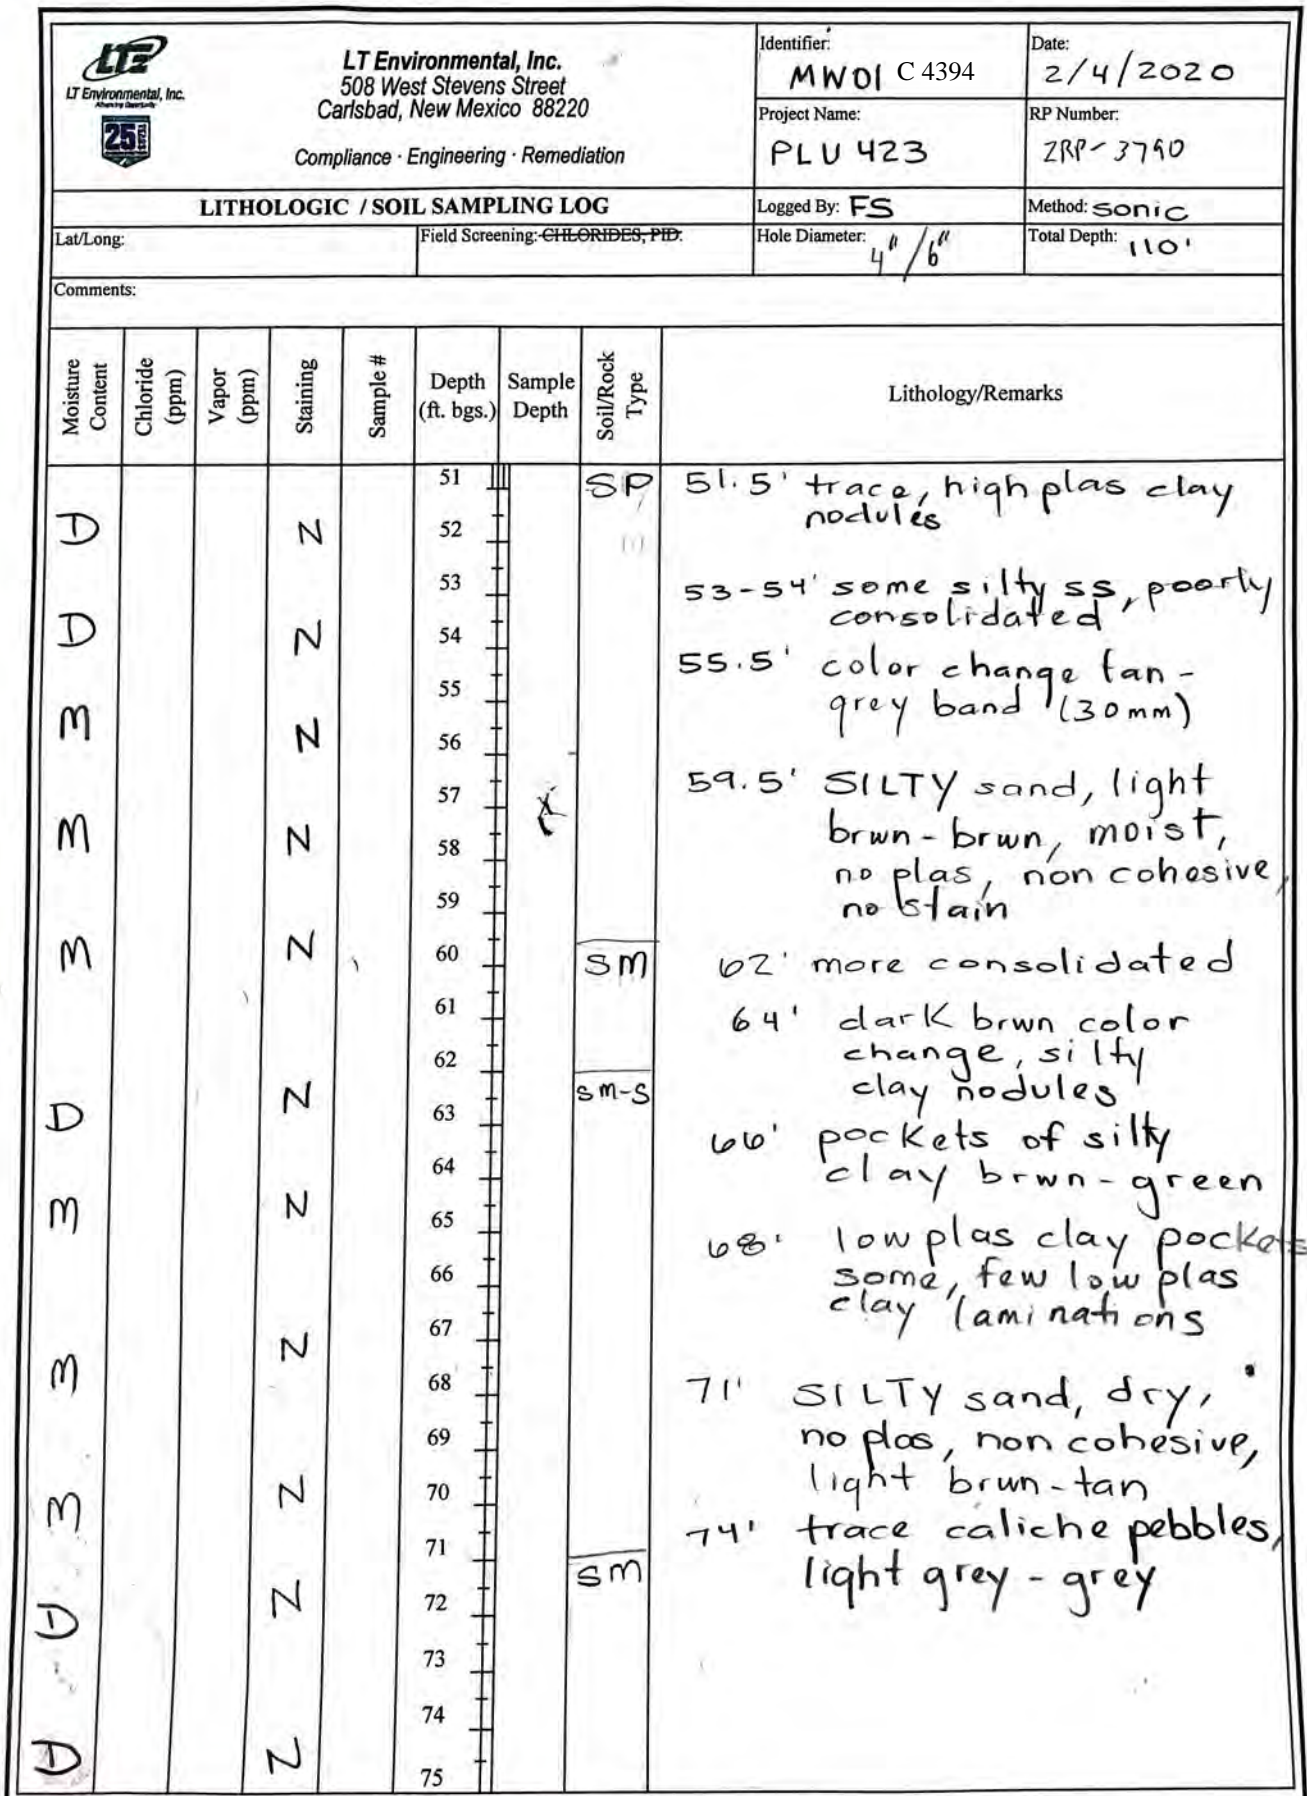 LTE
LT Environmental, Inc.
Advancing Opportunity
25
LT Environmental, Inc.
508 West Stevens Street
Carlsbad, New Mexico 88220
Compliance · Engineering · Remediation
Identifier:
MW01 C 4394
Date:
2/4/2020
Project Name:
PLU 423
RP Number:
2RP-3790
LITHOLOGIC / SOIL SAMPLING LOG
Logged By: FS
Method: Sonic
Lat/Long:
Field Screening: CHLORIDES, PID.
Hole Diameter: 4"/6"
Total Depth: 110'
Comments:
Moisture Content
Chloride (ppm)
Vapor (ppm)
Staining
Sample #
Depth (ft. bgs.)
Sample Depth
Soil/Rock Type
Lithology/Remarks
51 SP 51.5' trace, high plas clay
nodules
D N 52
53 53-54' some silty ss, poorly
consolidated
D N 54
55 55.5' color change tan-
grey band (30mm)
M N 56
57 59.5' SILTY sand, light
brwn-brwn, moist,
M N 58
no plas, non cohesive,
59 no stain
M N 60 SM 62' more consolidated
61 64' dark brwn color
change, silty
62 clay nodules
D N 63 SM-S 66' pockets of silty
clay brwn-green
64
M N 65 68' low plas clay pockets
some, few low plas
66 clay laminations
67
M N 68 71' SILTY sand, dry,
no plas, non cohesive,
69 light brwn-tan
M N 70 74' trace caliche pebbles,
light grey - grey
71 SM
D N 72
73
74
D N 75